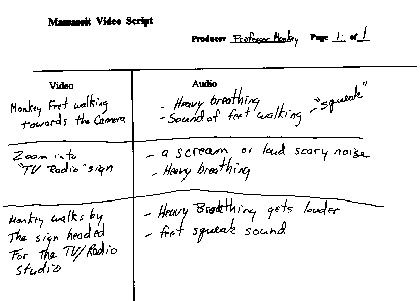 Mamaneit Video Script
Producer Professor Monkey Page 1 of 1
Video
Audio
Monkey Feet walking
towards the Camera
- Heavy breathing
- Sound of feet walking - "squeak"
Zoom into
"TV Radio" sign
- a scream or loud scary noise
- Heavy breathing
Monkey walks by
The sign headed
For the TV/Radio
Studio
- Heavy Breathing gets louder
- feet squeak sound